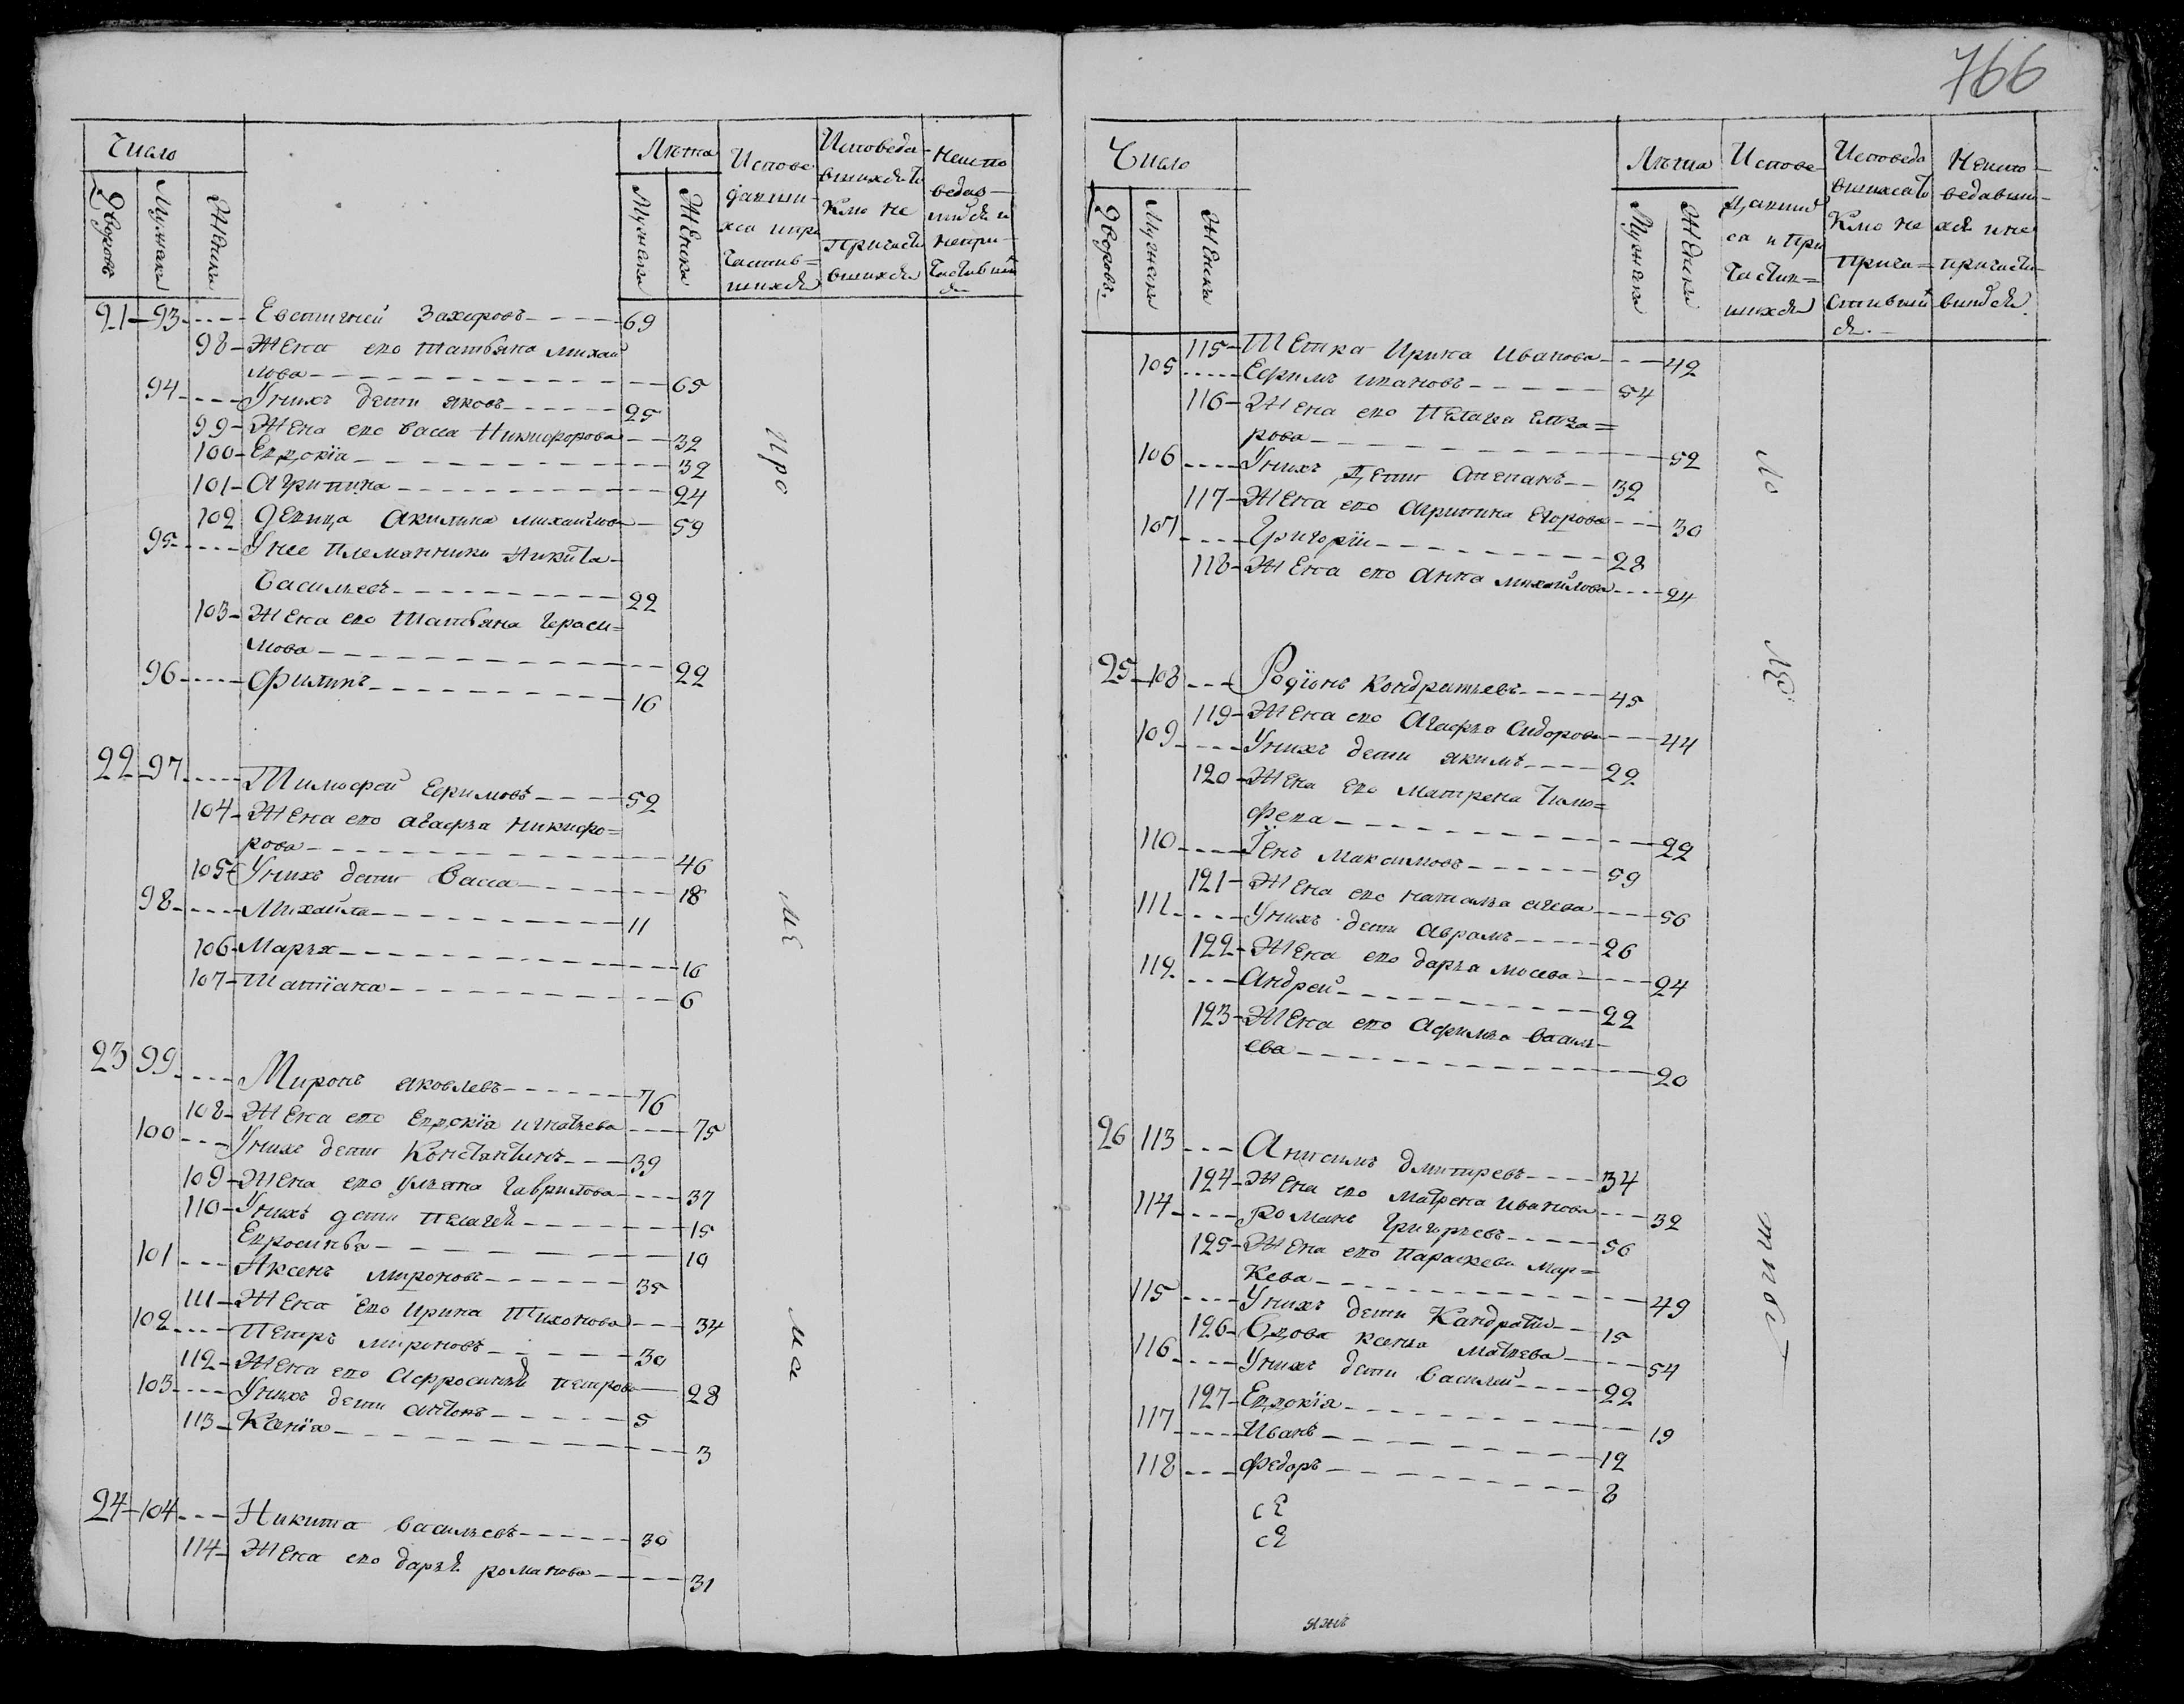 766
Число
Лѣта
Дворовъ
Мужска
Женска
Мужеска
Женска
Испове
давши-
хся и при
частив=
шихся
Исповеда-
вшихся
кто не
причасти
вшихся
Неиспо
ведав-
шихся и
непри-
частивши
ся
21-93 Евстигней Захаровъ 69
98 Жена его Татьяна Михай
лова 65
94 У нихъ дети Яковъ 25
99 Жена его Васса Никифорова 32
100 Евдокїа 32
101 Агрипина 24
102 Девица Акилина Михайлова 59
95 У нее племянники Никита
Васильевъ 22
103 Жена его Татьяна Гераси=
мова 22
96 Филипъ 16
22-97 Тимофей Ефимовъ 52
104 Жена его Агафья Никифо=
рова 46
105 У нихъ дети Васса 18
98 Михайла 11
106 Марья 16
107 Татїана 6
23 99 Миронъ Яковлевъ 76
108 Жена его Евдокїа Игнатьева 75
100 У нихъ дети Константинъ 39
109 Жена его Ульяна Гаврилова 37
110 У нихъ дети Пелагея 15
Евросинья 10
101 Аксенъ Мироновъ 35
111 Жена его Ирина Тихонова 34
102 Петръ Мироновъ 30
112 Жена его Афросинья Петрова 28
103 У нихъ дети Антонъ 5
113 Ксенїя 3
24-104 Никита Васильевъ 30
114 Жена его Дарья Романова 31
про
ме
ма
Число
Лѣта
Дворовъ.
Мужска
Женска
Мужеска
Женска
Испове-
давши
ся и при
частив=
шихся
Исповеда
вшихся
кто не
прича=
стивший
ся.
Неиспо-
ведавши-
хся и не
причасти-
вшихся.
115 Тетка Ирина Иванова 42
105 Ефимъ Ивановъ 54
116 Жена его Пелагея Елиза=
рова 52
106 У нихъ дети Степанъ 32
117 Жена его Агрипина Егорова 30
107 Григорїи 28
118 Жена его Анна Михайлова 24
25-108 Родїонъ Кондратьевъ 45
119 Жена его Агафья Сидорова 44
109 У нихъ дети Якимъ 22
120 Жена его Матрена Тимо=
феева 22
110 Максимовъ 59
121 Жена его Наталья 56
111 У нихъ дети Аврамъ 26
122 Жена его Дарья Мосева 24
112 Андрей 22
123 Жена его Афимья Василь
ева 20
26 113 Анисимъ Дмитревъ 34
124 Жена его Матрена Иванова 32
114 Романъ Григорьевъ 56
125 Жена его Параскева Мар=
кева 49
115 У нихъ дети Кандрати 15
126 Вдова Ксенья Матвева 54
116 У нихъ дети Василей 22
127 Евдокїя 19
117 Иванъ 12
118 Федоръ 8
се
се